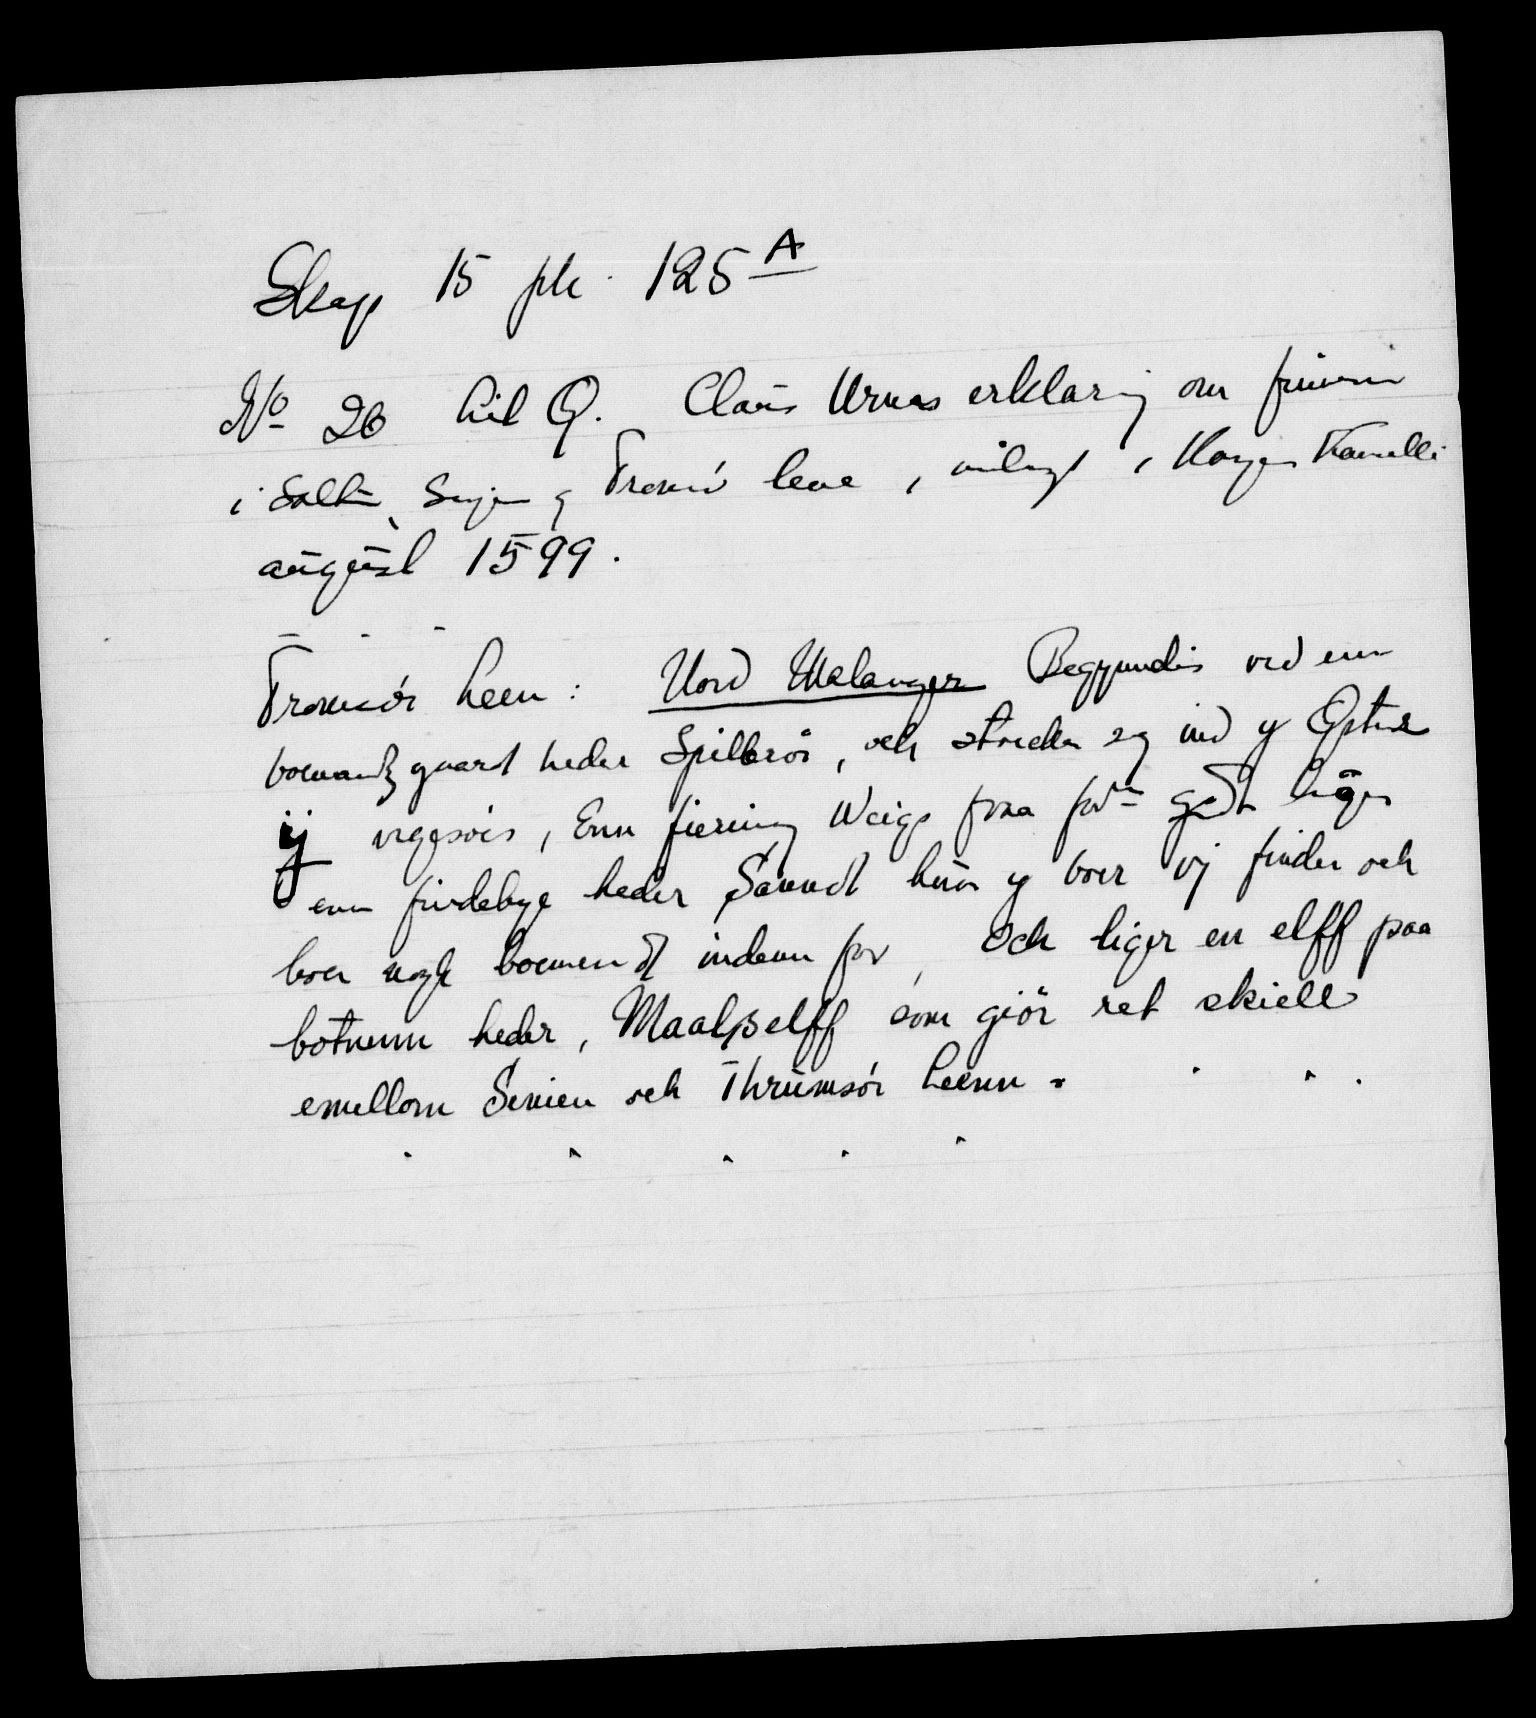 Skap 15 pk. 125 A
No 26 Lit Q. Claus Urnes erklæring om finnen
i Salten, Senjen og Tromsö lene, i Kongens Kancelli
august 1599.
Tromsör Leen: Nord Malanger Begyndis ved enn
boemandz gaard heder Spilbrör, och strecker seg ind y Östnes
ij vegesöis, Enn fiering Weigs fraa for^ne gaard ligger
enn findebye heder Sanndt huor y boer vj finder och
boer nogle boemend indenn for, Och liger en elff paa
botnenn heder, Maalsselff som giör ret skiell
emellom Sinien och Thrumsör Leenn.